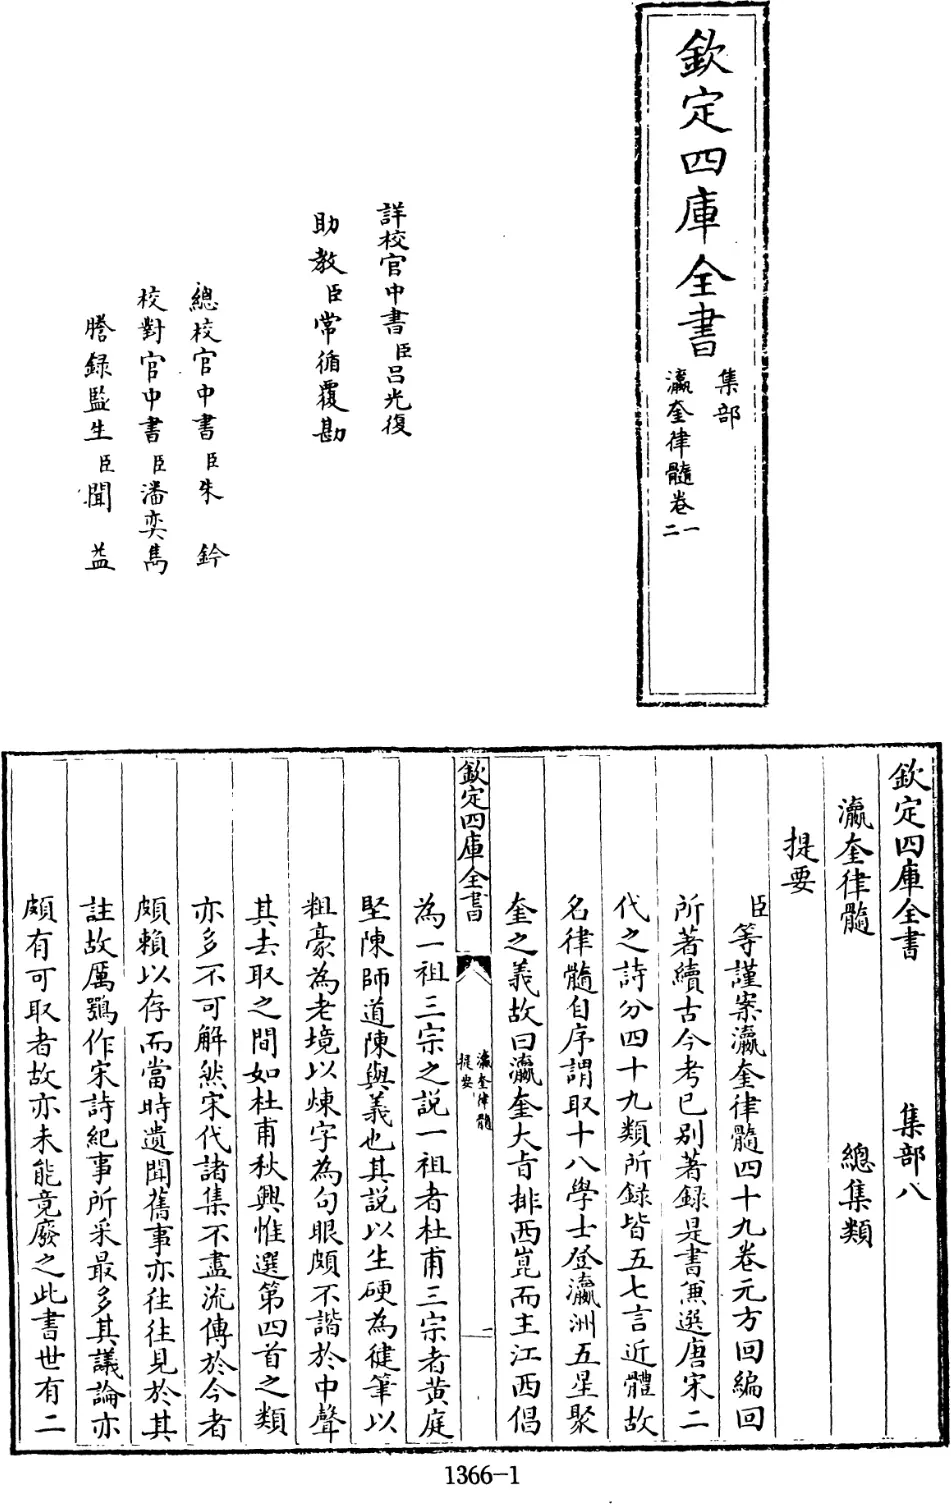 欽定四庫全書
集部
瀛奎律髓卷一
二
詳校官中書臣呂光復
助教臣常循覆勘
總校官中書臣朱鈐
校對官中書臣潘奕雋
謄錄監生臣聞益
欽定四庫全書 集部八
瀛奎律髓 總集類
提要
臣等謹案瀛奎律髓四十九卷元方回編回
所著續古今考已别著錄是書兼選唐宋二
代之詩分四十九類所録皆五七言近體故
名律髓自序謂取十八學士登瀛洲五星聚
奎之義故曰瀛奎大旨排西崑而主江西倡
欽定四庫全書
瀛奎律髓
提要
一
為一祖三宗之説一祖者杜甫三宗者黄庭
堅陳師道陳與義也其説以生硬為健筆以
粗豪為老境以煉字為句眼頗不諧於中聲
其去取之間如杜甫秋興惟選第四首之類
亦多不可解然宋代諸集不盡流傳於今者
頗賴以存而當時遺聞舊事亦往往見於其
註故厲鶚作宋詩紀事所采最多其議論亦
頗有可取者故亦未能竟廢之此書世有二
1366-1